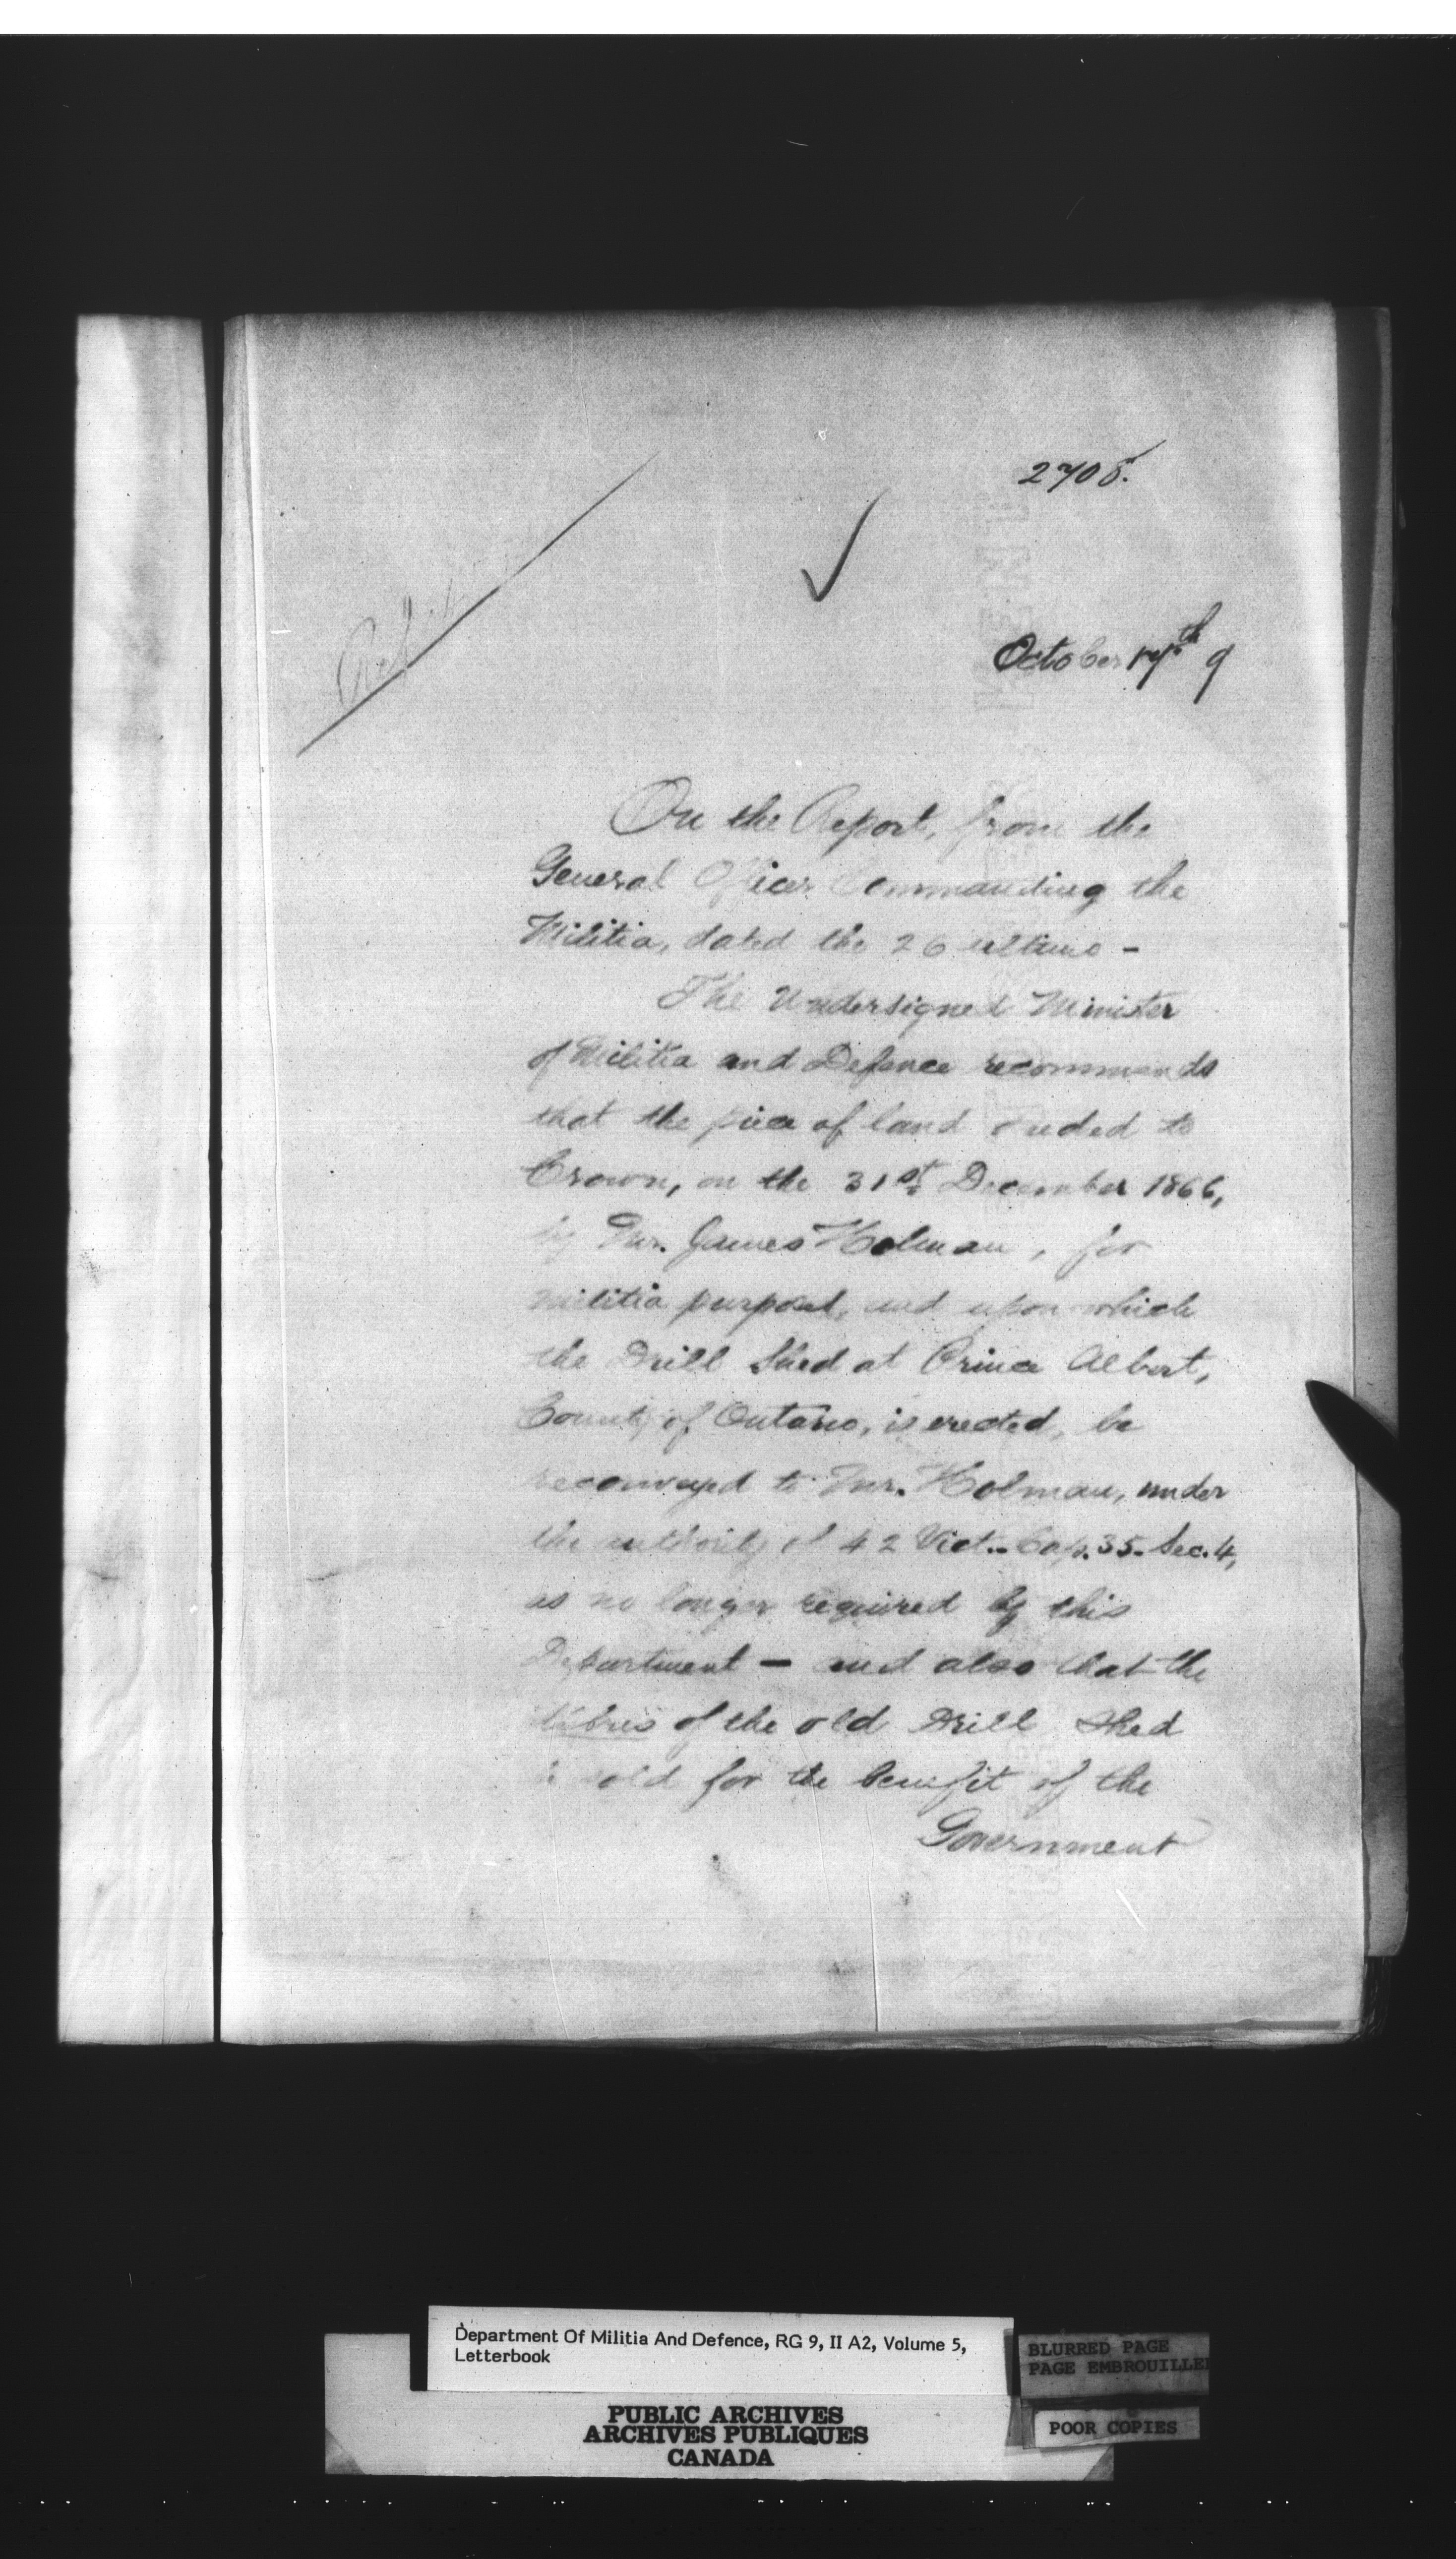 2705.
October 17th 9
On the Report, from the
General Officer Commanding the
Militia, dated the 26 ultimo -
The Undersigned Minister
of Militia and Defence recommends
that the piece of land ceeded to
Crown, on the 31st December 1866,
by Mr. James Holman, for
Militia purposes, and upon which
the Drill Shed at Prince Albert,
County of Ontario, is erected, be
reconveyed to Mr. Holman, under
the authority of 42 Vict.. Cap. 35. Sec. 4,
as no longer required by this
Department - and also that the
débris of the old Drill Shed
sold for the benefit of the
Government
Department Of Militia And Defence, RG 9, II A2, Volume 5,
Letterbook
BLURRED PAGE
PAGE EMBROUILLEE
PUBLIC ARCHIVES
ARCHIVES PUBLIQUES
CANADA
POOR COPIES